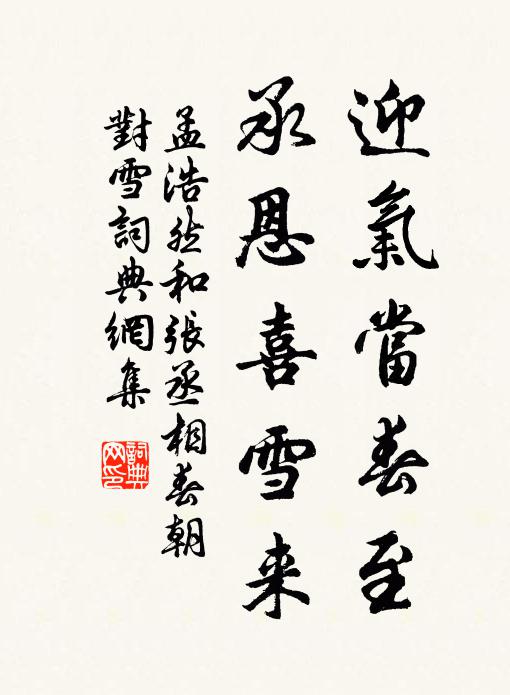 迎氣當春至
承恩喜雪来
孟浩然和張丞相春朝
對雪詞典網集
詞典
网印